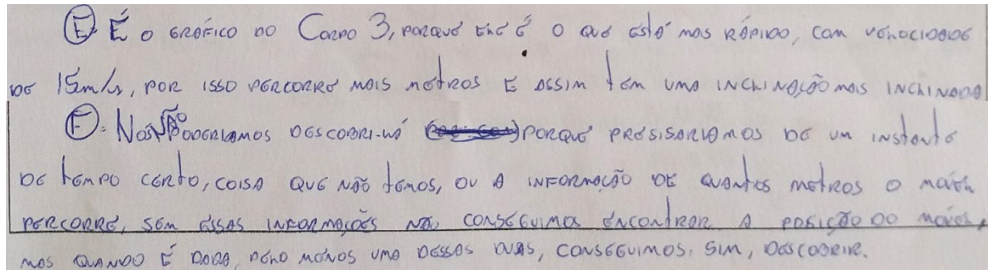 E. É O GRÁFICO DO CORPO 3, PORQUE ELE É O QUE ESTÁ MAS RÁPIDO, COM VELOCIDADE
DE 15m/s, POR ISSO PERCORRE MAIS METROS E ASSIM TEM UMA INCLINAÇÃO MAIS INCLINADA
F. NÓS NÃO PODERIAMOS DESCOBRI-LA PORQUE PRESISARIAMOS DE UM INSTANTE
DE TEMPO CERTO, COISA QUE NÃO TEMOS, OU A INFORMAÇÃO DE QUANTOS METROS O MÓVEL
PERCORRE, SEM ESSAS INFORMAÇÕES NÃO CONSEGUIMOS ENCONTRAR A POSIÇÃO DO MÓVEL,
MAS QUANDO É DADA, PELO MENOS UMA DESSAS DUAS, CONSEGUIMOS, SIM, DESCOBRIR.